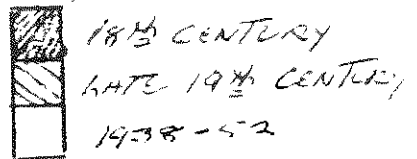 18th CENTURY
LATE 19th CENTURY
1938-52